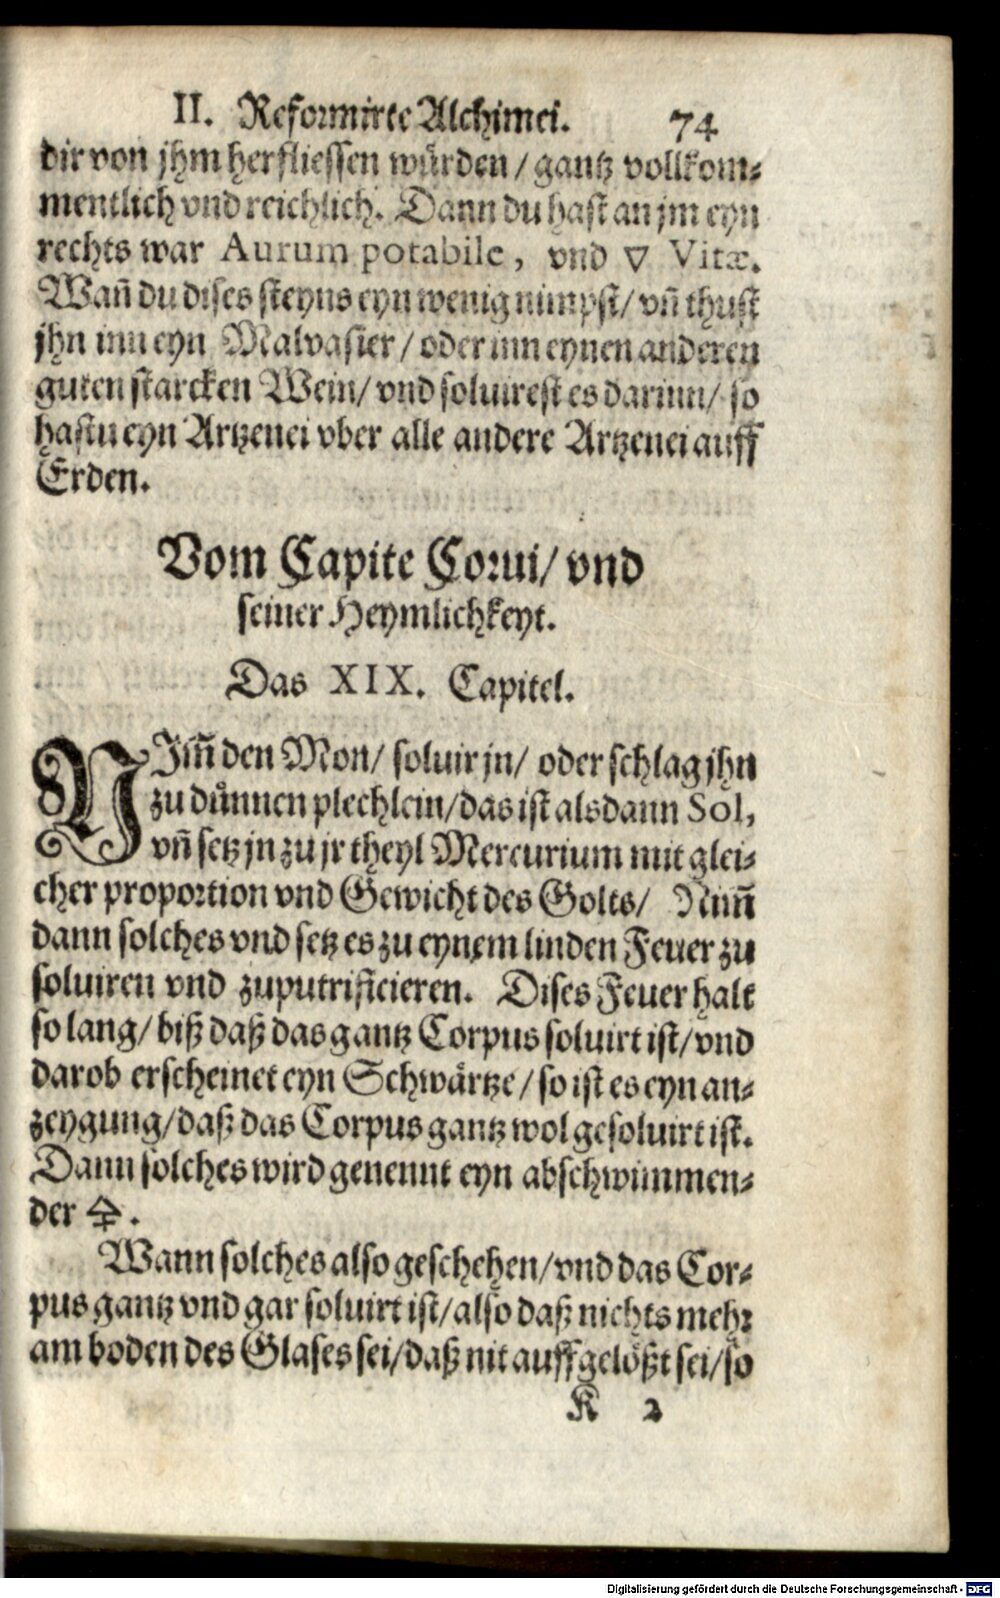 II. Reformirte Alchimei. 74
dir von jhm herfliessen würden / gantz vollkom⸗
mentlich vnd reichlich. Dann du hast an jm eyn
rechts war Aurum potabile, vnd 🜄 Vitæ.
Wañ du dises steyns eyn wenig nimpst / vñ thust
jhn inn eyn Malvasier / oder inn eynen anderen
guten starcken Wein / vnd soluirest es darinn / so
hastu eyn Artzenei vber alle andere Artzenei auff
Erden.
Vom Capite Corui / vnd
seiner Heymlichkeyt.
Das XIX. Capitel.
NIm̃ den Mon / soluir jn / oder schlag jhn
zu dünnen plechlein / das ist alsdann Sol,
vñ setz jn zu jr theyl Mercurium mit glei⸗
cher proportion vnd Gewicht des Golts / Nim̃
dann solches vnd setz es zu eynem linden Feuer zu
soluiren vnd zuputrificieren. Dises Feuer halt
so lang / biß daß das gantz Corpus soluirt ist / vnd
darob erscheinet eyn Schwärtze / so ist es eyn an⸗
zeygung / daß das Corpus gantz wol gesoluirt ist.
Dann solches wird genennt eyn abschwimmen⸗
der 🜍.
Wann solches also geschehen / vnd das Cor⸗
pus gantz vnd gar soluirt ist / also daß nichts mehr
am boden des Glases sei / daß nit auffgelößt sei / so
K 2
Digitalisierung gefördert durch die Deutsche Forschungsgemeinschaft - DFG